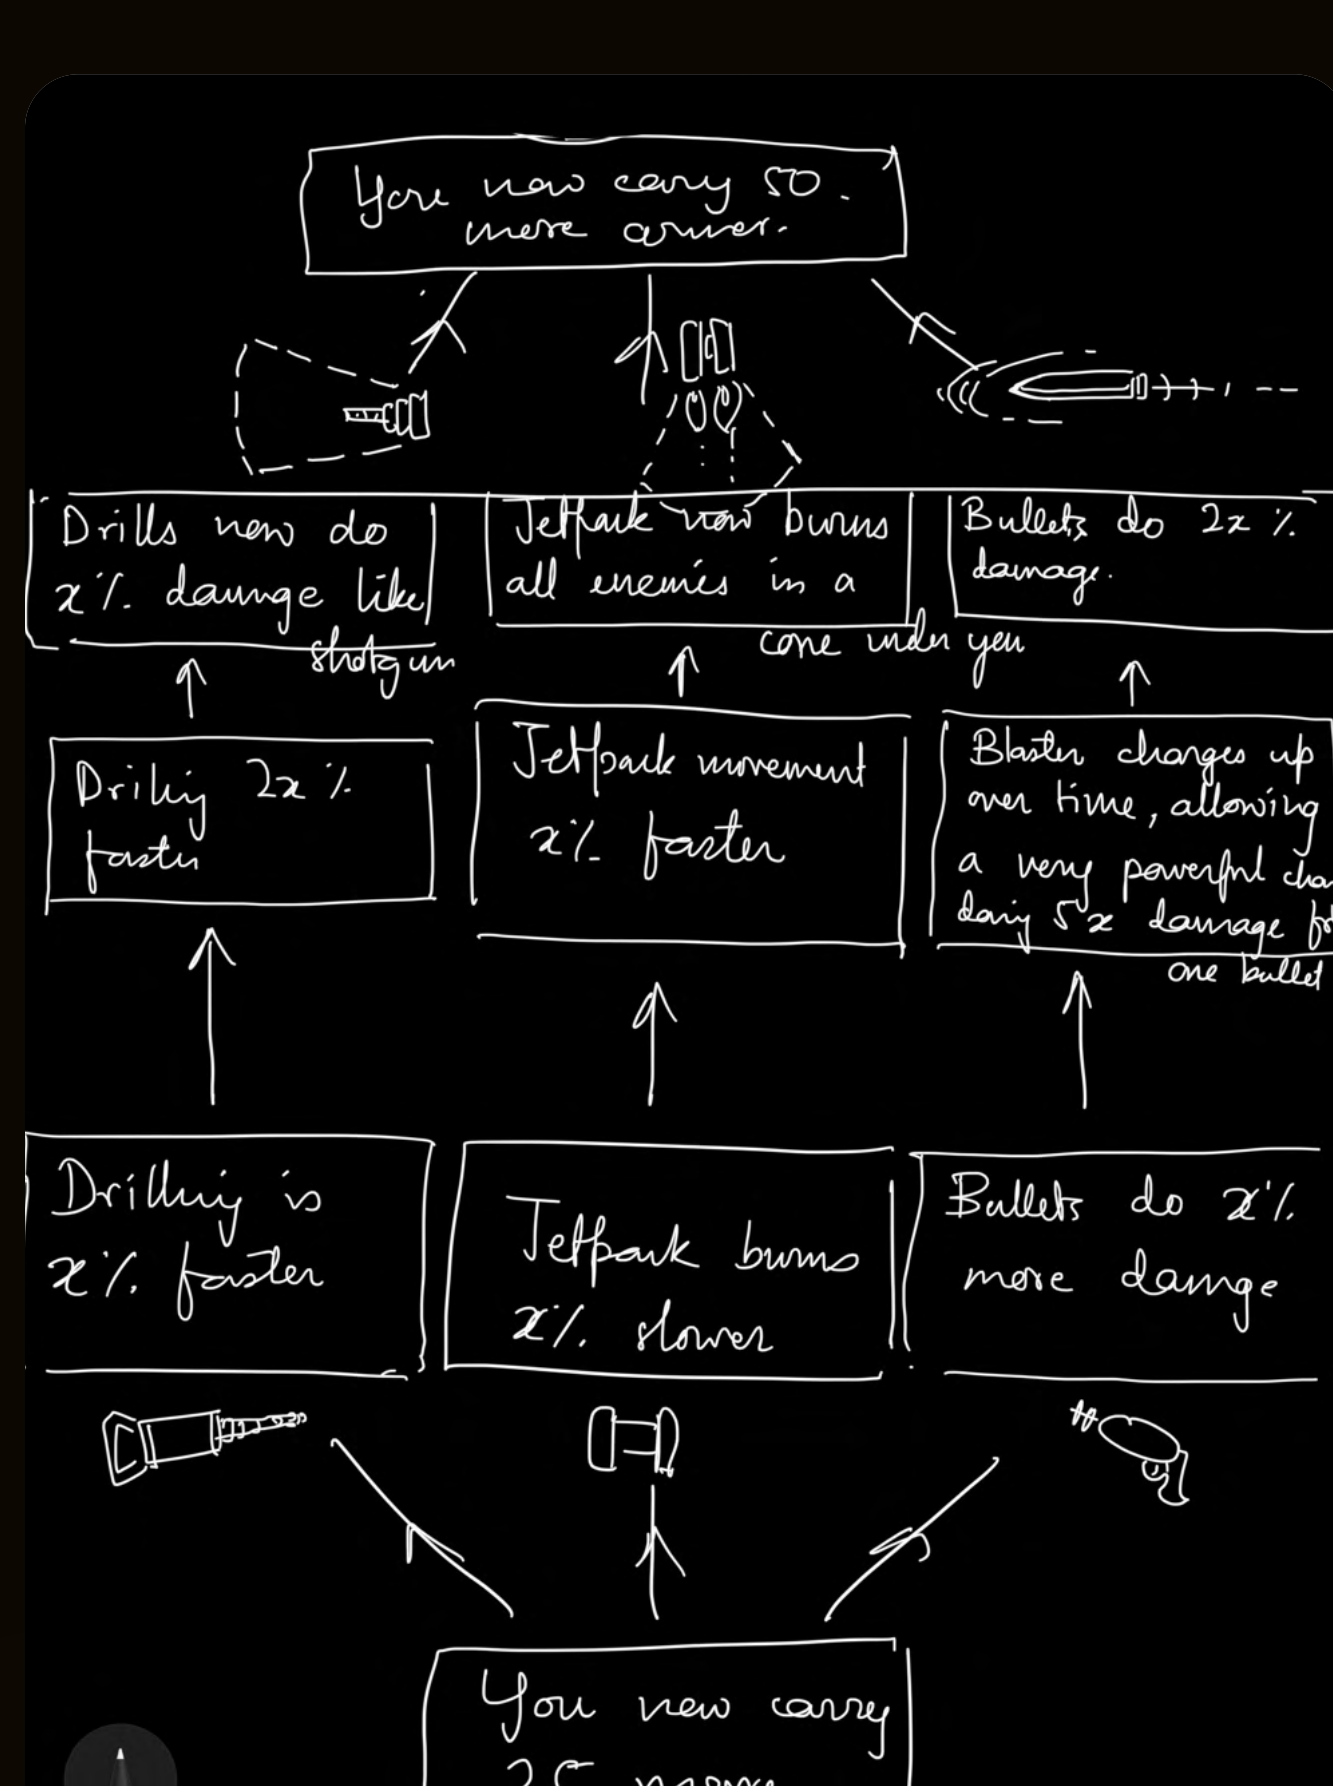 You now carry 50
more armor.
Drills now do
x% damage like
shotgun
Jetpack now burns
all enemies in a
cone under you
Bullets do 2x %
damage.
Drilling 2x %
faster
Jetpack movement
x% faster
Blaster charges up
over time, allowing
a very powerful cha
doing 5x damage fo
one bullet
Drilling is
x% faster
Jetpack burns
x% slower
Bullets do x%
more damage
You now carry
25 more